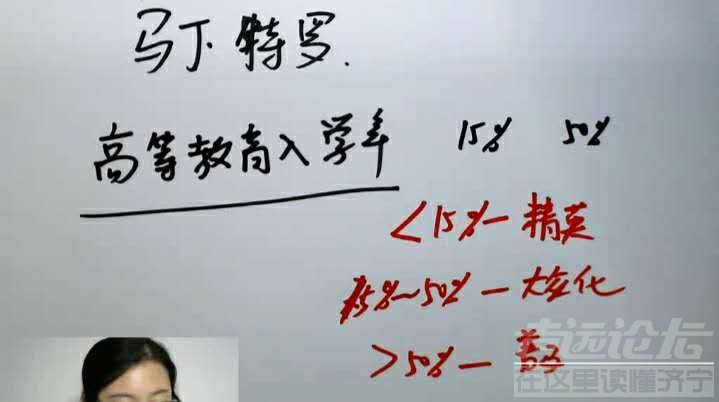 马丁·特罗.
高等教育入学率 15% 50%
<15%—精英
15%~50%—大众化
>50%—普及
志远论坛
在这里读懂济宁